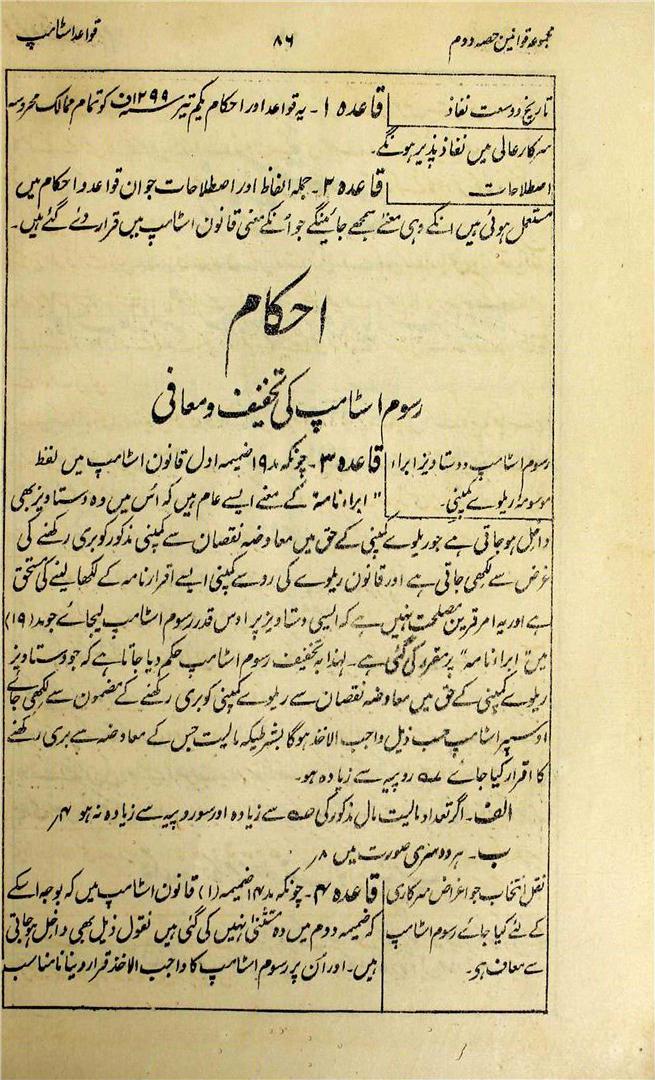 مجموعہ قوانین حصہ دوم ۸۶ قواعد اسٹامپ
تاریخ و وسعت نفاذ قاعدہ ۱۔ یہ قواعد اور احکام یکم تیر ۱۲۹۹ف کو تمام ممالک محروسہ
سرکار عالی میں نفاذ پذیر ہونگے۔
اصطلاحات قاعدہ ۲۔ جملہ الفاظ اور اصطلاحات جو ان قواعد و احکام میں
مستعمل ہوئی ہیں انکے وہی معنے سمجھے جائینگے جو اُنکے معنی قانون اسٹامپ میں قرار دئے گئے ہیں۔
احکام
رسوم اسٹامپ کی تخفیف و معافی
رسوم اسٹامپ دستاویز ابراء قاعدہ ۳۔ چونکہ مد ۱۹ ضمیمہ اول قانون اسٹامپ میں لفظ
موسومہ ریلوے کمپنی۔ "ابراء نامہ" کے معنے ایسے عام ہیں کہ اُس میں وہ دستاویز بھی
داخل ہوجاتی ہے جو ریلوے کمپنی کے حق میں معاوضہ نقصان سے کمپنی مذکور کو بری رکھنے کی
غرض سے لکھی جاتی ہے اور قانون ریلوے کی رو سے کمپنی ایسے اقرارنامہ کے لکھا لینے کی مستحق
ہے اور یہ امر قرین مصلحت نہیں ہے کہ ایسی دستاویز پر اوس قدر رسوم اسٹامپ لیجائے جو مد (۱۹)
میں "ابراء نامہ" پر مقرر کی گئی ہے۔ لہذا بہ تخفیف رسوم اسٹامپ حکم دیا جاتا ہے کہ جو دستاویز
ریلوے کمپنی کے حق میں معاوضہ نقصان سے ریلوے کمپنی کو بری رکھنے کے مضمون سے لکھی جائے
اوسپر اسٹامپ حسب ذیل واجب الاخذ ہوگا بشرطیکہ مالیت جس کے معاوضہ سے بری رکھنے
کا اقرار کیا جائے روپیہ سے زیادہ ہو۔
الف۔ اگر تعداد مالیت مال مذکور کی سے زیادہ اور سو روپیہ سے زیادہ نہ ہو ۴؍
ب۔ ہر دوسری صورت میں ۸؍
نقل انتخاب جو اغراض سرکاری قاعدہ ۴۔ چونکہ مد ۱۴ ضمیمہ (۱) قانون اسٹامپ میں کہ بوجہ اسکے
کے لئے کیا جائے رسوم اسٹامپ کہ ضمیمہ دوم میں وہ مستثنیٰ نہیں کی گئی ہیں نقول ذیل بھی داخل ہوجاتی
سے معاف ہو۔ ہیں۔ اور اُن پر رسوم اسٹامپ کا واجب الاخذ قرار دینا نامناسب